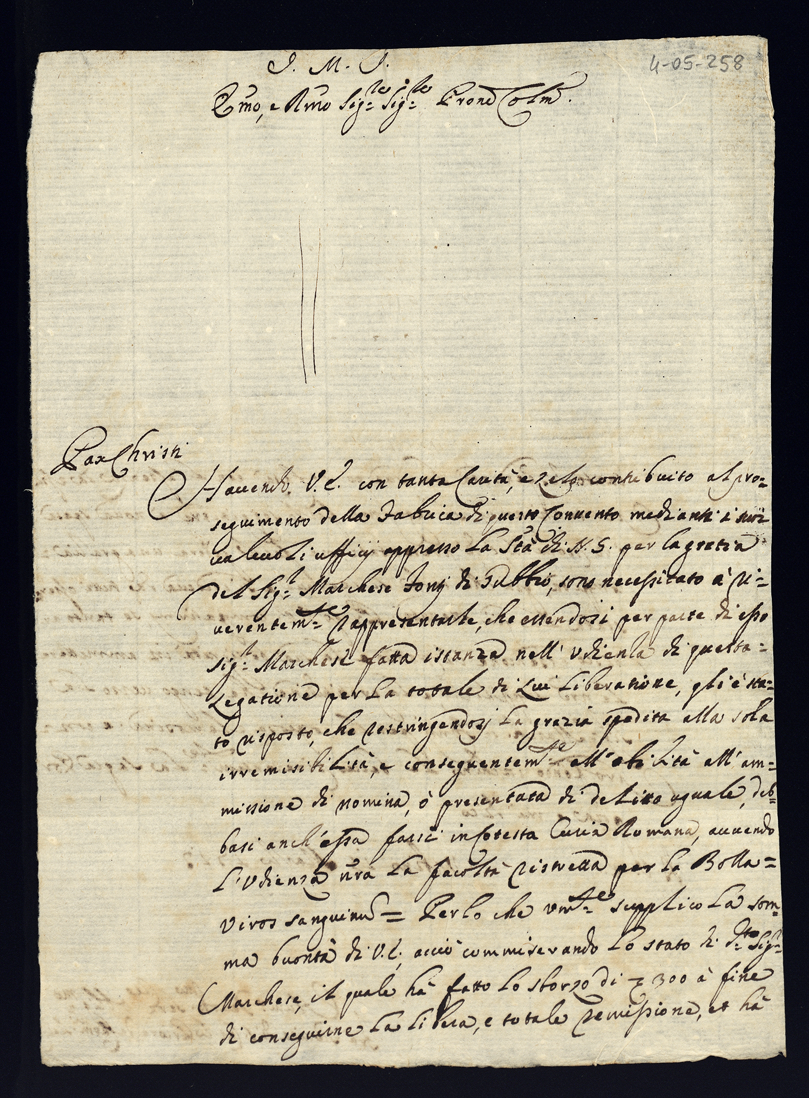 4-05-258
J. M. J.
Emo, e Rmo Sigre Sigre Prone Colmo.
Pax Christi
Havendo V.E. con tanta Carità, e zelo contribuito al pro=
seguimento della Fabrica di questo Convento mediante i suoi
valevoli ufficij appresso la Stà di N.S. per la grazia
del Sigr Marchese di Gubbio, sono necessitato à ri=
verentemte rappresentarle, che essendosi per parte di esso
Sigr Marchese fatta istanza nell'Udienza di questa
Legatione per la totale di Lui liberatione, gli è sta=
to risposto, che restringendosi la grazia spedita alla sola
irremisibilità, e conseguentemte all'abilità all'am=
missione di nomina, ò presentata di delitto uguale, deb=
basi anch'essa farsi in cotesta Curia Romana, avendo
l'Udienza nra la facoltà ristretta per la Bolla=
Viros sanguinum= Perlo che umte supplico la som=
ma bontà di V.E., acciò commiserando lo stato di dto Sigr
Marchese, il quale hà fatto lo sborzo di 300 à fine
di conseguirne la libera, e totale remissione, et hà